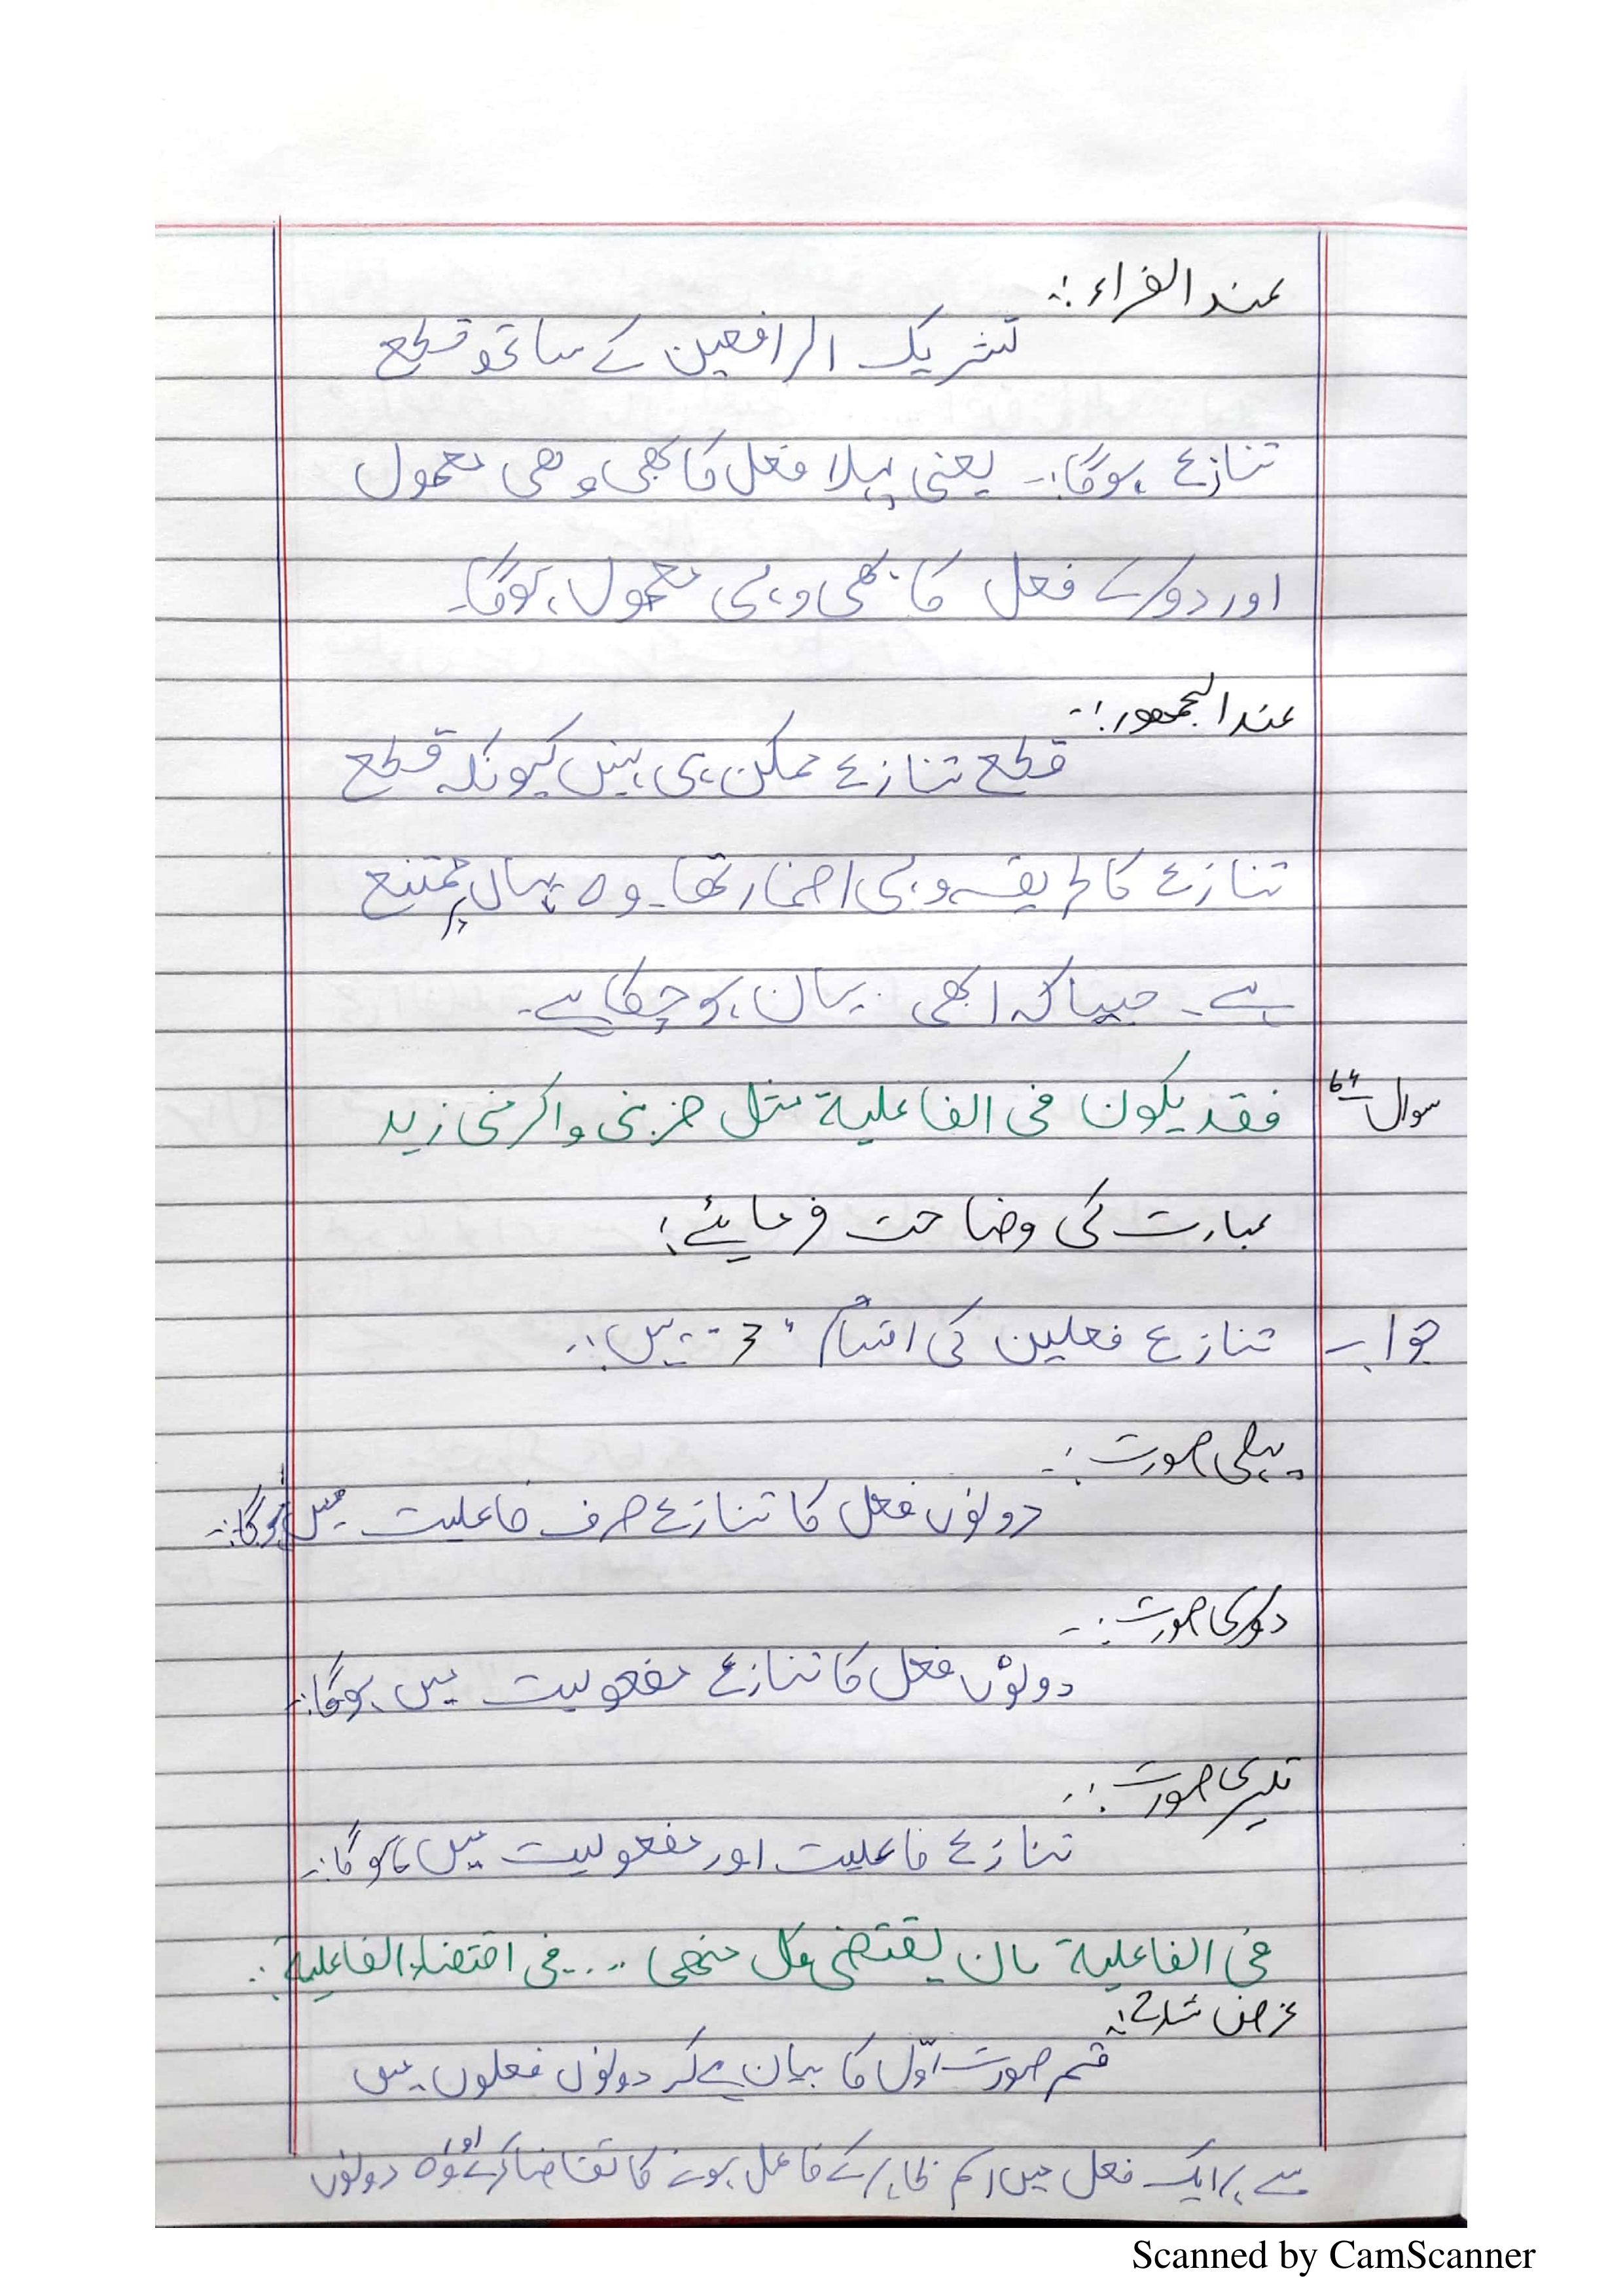 عند الفراء :-
تشریک الرافعین کے ساتھ قطع
تنازع ہوگا:- یعنی پہلا فعل کا بھی وہی معمول
اور دوسرے فعل کا بھی وہی معمول ہوگا۔
عند الجمهور :-
قطع تنازع ممکن ہی نہیں کیونکہ قطع
تنازع کا طریقہ وہی اضمار تھا۔ وہ یہاں پر ممتنع
ہے۔ جیسا کہ ابھی بیان ہو چکا ہے۔
سوال 64 فقد یکون فی الفاعلیة مثل ضربنی واکرمنی زید
عبارت کی وضاحت فرمائیے؛
جواب تنازع فعلین کی اقسام 3 ہیں:-
پہلی صورت :-
دونوں فعل کا تنازع صرف فاعلیت میں ہوگا:-
دوسری صورت :-
دونوں فعل کا تنازع مفعولیت میں ہوگا:-
تیسری صورت :-
تنازع فاعلیت اور مفعولیت میں ہوگا:-
فی الفاعلیة بان یقتضی کل منهما ... فی اقتضاء الفاعلیة :-
غرض شارح :-
قسم صورت اوّل کا بیان ہے کہ دونوں فعلوں میں
سے ہر ایک فعل میں اسم ظاہر کے فاعل ہونے کا تقاضا کرے اور وہ دونوں
Scanned by CamScanner